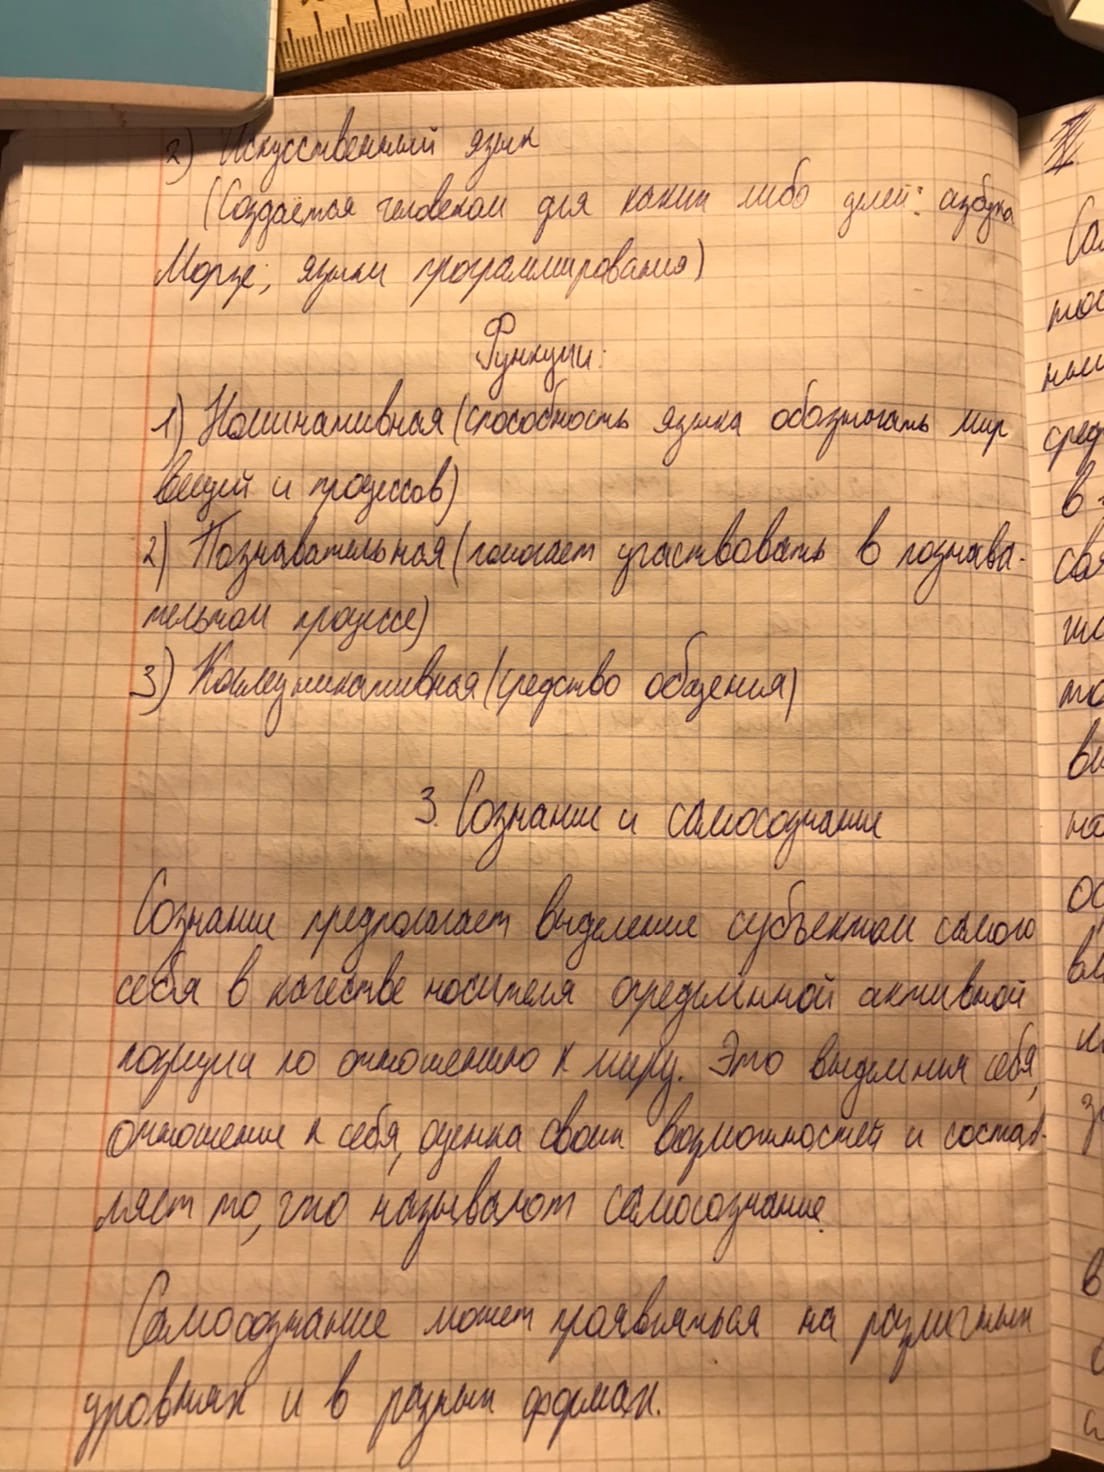 2) Искусственный язык
(Создаётся человеком для каких либо целей: азбука
Морзе; языки программирования)
Функции:
1) Номинативная (способность языка обозначать мир
вещей и процессов)
2) Познавательная (помогает участвовать в познава-
тельном процессе)
3) Коммуникативная (средство общения)
3. Сознание и самосознание
Сознание предполагает выделение субъектом самого
себя в качестве носителя определённой активной
позиции по отношению к миру. Это выделения себя,
отношение к себя, оценка своих возможностей и состав-
ляет то, что называют самосознание.
Самосознание может проявляться на различных
уровнях и в разных формах.